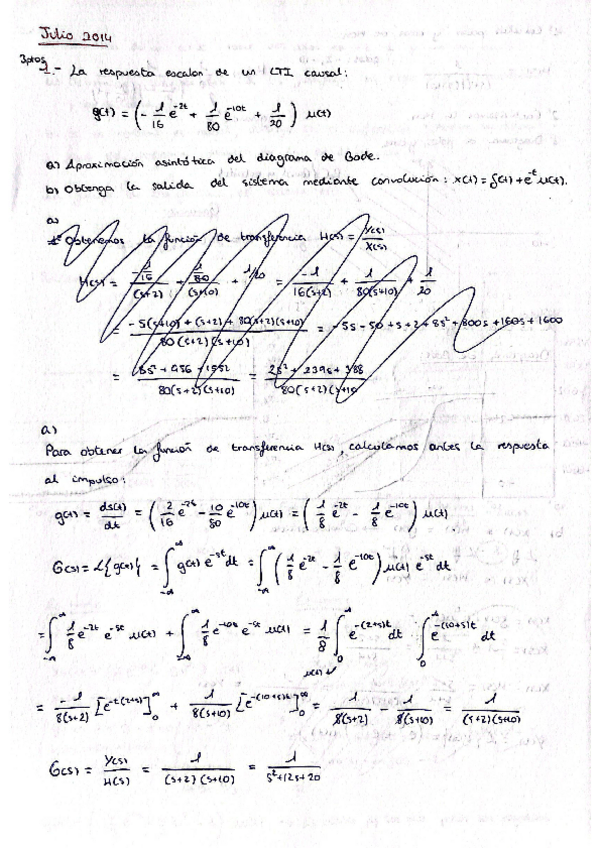 Julio 2014
3ptos
1.- La respuesta escalon de un LTI causal:
g(t) = (- 1/16 e^-2t + 1/80 e^-10t + 1/20) u(t)
a) Aproximación asintótica del diagrama de Bode.
b) Obtenga la salida del sistema mediante convolución: x(t) = δ(t) + e^-t u(t).
a)
Obtenemos la función de transferencia H(s) = Y(s)/X(s)
H(s) = (-1/16)/(s+2) + (1/80)/(s+10) + 1/20 = -1/16(s+2) + 1/80(s+10) + 1/20
= -5(s+10) + (s+2) + 80(s+2)(s+10) / 80(s+2)(s+10) = -5s - 50 + s + 2 + 8s² + 800s + 160s + 1600
= / 80(s+2)(s+10) = / 80(s+2)(s+10)
a)
Para obtener la función de transferencia H(s), calculamos antes la respuesta
al impulso:
g(t) = ds(t)/dt = (2/16 e^-2t - 10/80 e^-10t) u(t) = (1/8 e^-2t - 1/8 e^-10t) u(t)
G(s) = L{g(t)} = ∫_-∞^∞ g(t) e^-st dt = ∫_-∞^∞ (1/8 e^-2t - 1/8 e^-10t) u(t) e^-st dt
= ∫_-∞^∞ 1/8 e^-2t e^-st u(t) + ∫_-∞^∞ 1/8 e^-10t e^-st u(t) = 1/8 ∫_0^∞ e^-(2+s)t dt ∫_0^∞ e^-(10+s)t dt
= -1/8(s+2) [e^-t(2+s)]_0^∞ + 1/8(s+10) [e^-(10+s)t]_0^∞ = 1/8(s+2) - 1/8(s+10) = 1/(s+2)(s+10)
G(s) = Y(s)/H(s) = 1/(s+2)(s+10) = 1/s²+12s+20